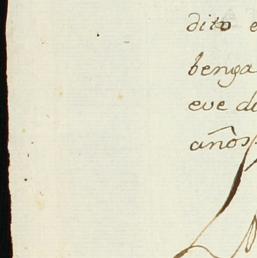 dito e
benga
eve d
años